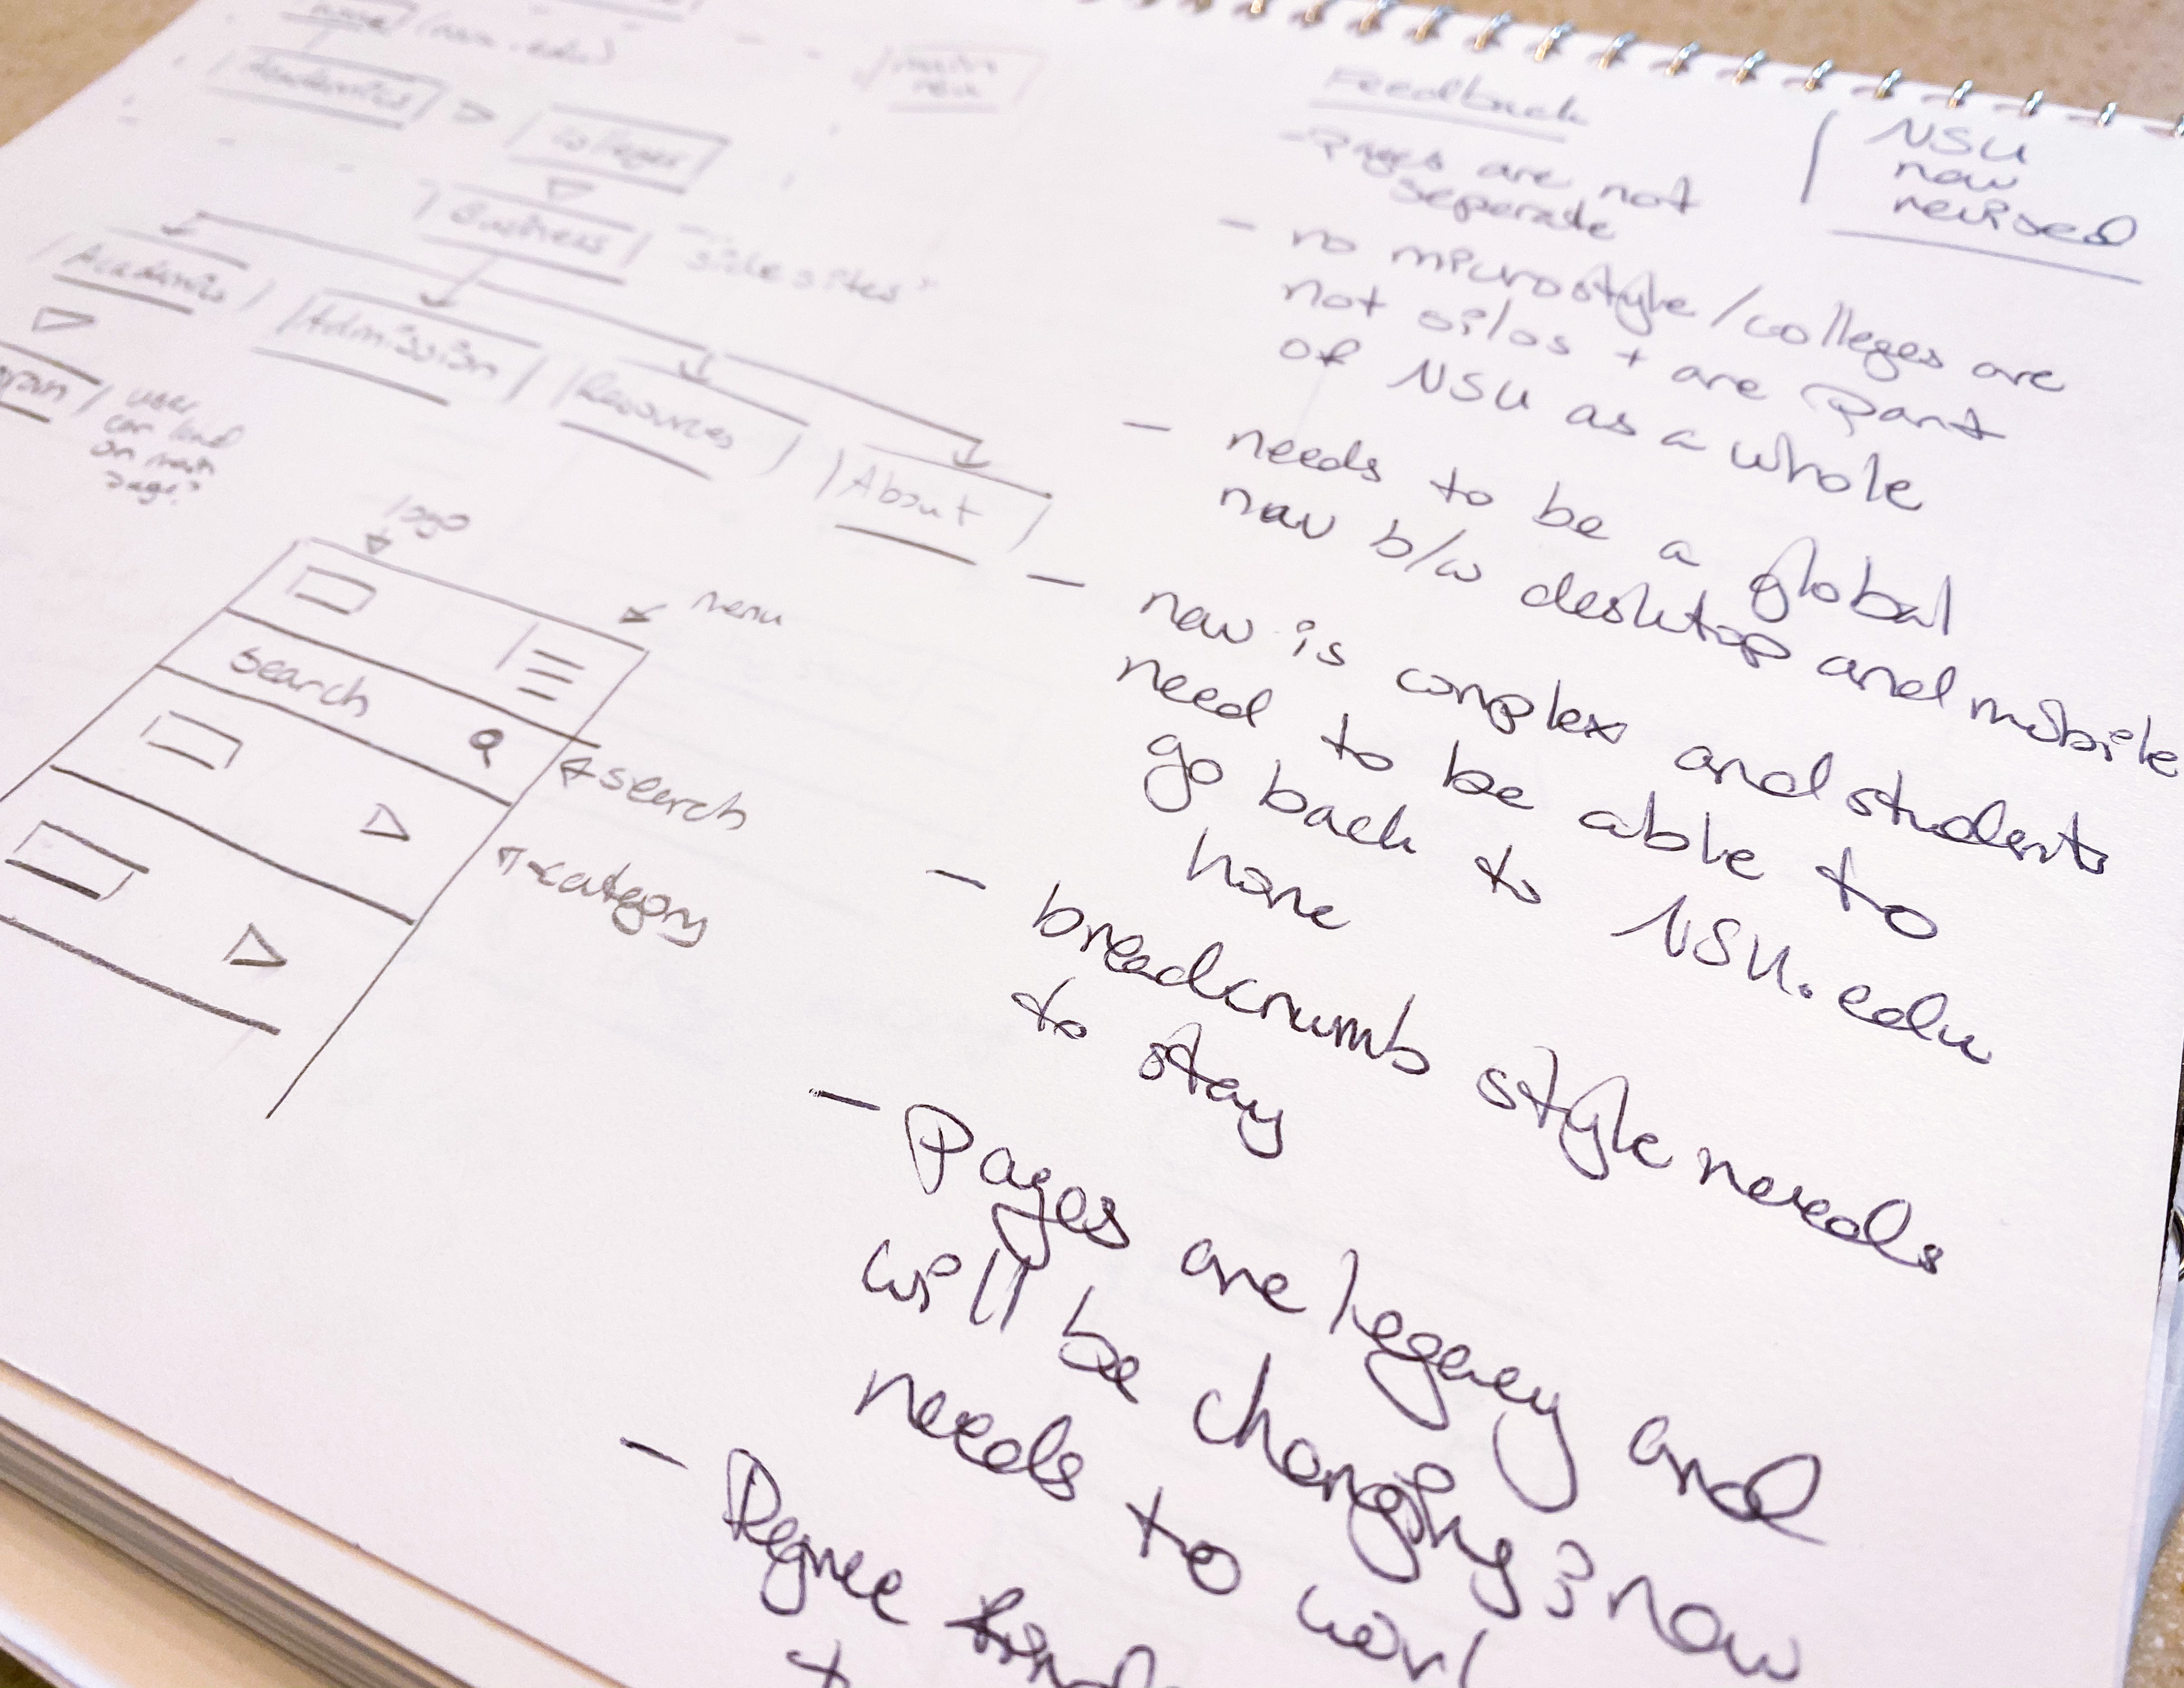 home (nsu.edu)
main
nav
Academics
colleges
Business
"side sites"
Academics
Admission
Resources
About
user
can land
on main
page?
logo
menu
search
search
category
Feedback
- Pages are not
seperate
NSU
nav
revised
- no microstyle / colleges are
not silos + are part
of NSU as a whole
- needs to be a global
nav b/w desktop and mobile
- nav is complex and students
need to be able to
go back to NSU.edu
home
- breadcrumb style needs
to stay
- Pages are legacy and
will be changing; nav
needs to work
- Degree